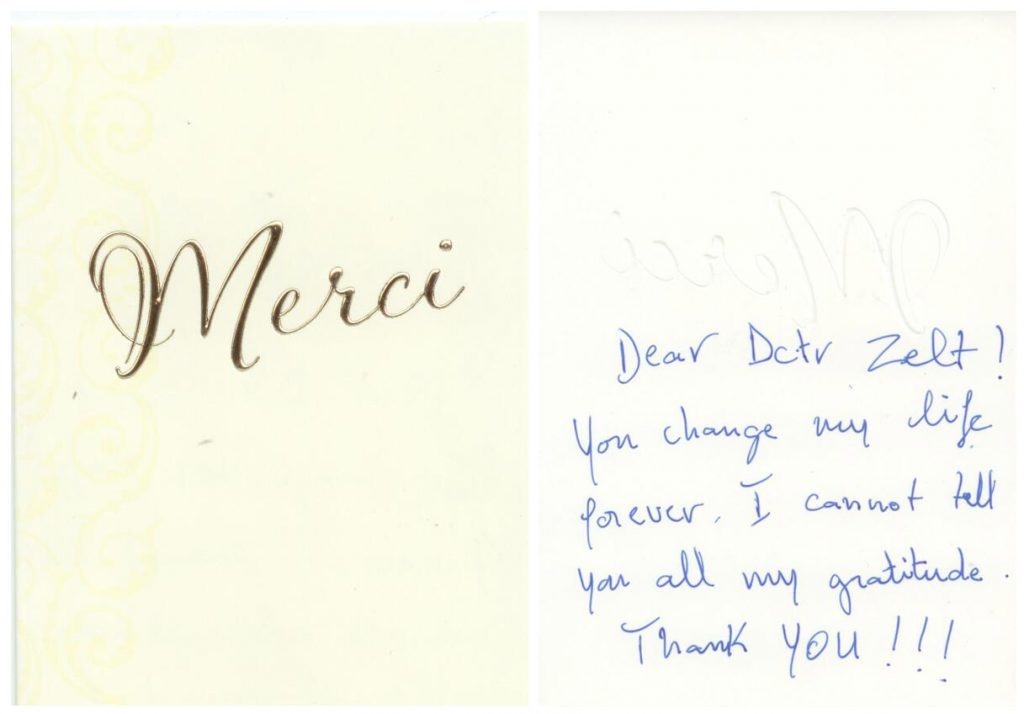 Merci
Dear Dctr Zelt!
You change my life
forever. I cannot tell
you all my gratitude.
Thank YOU!!!